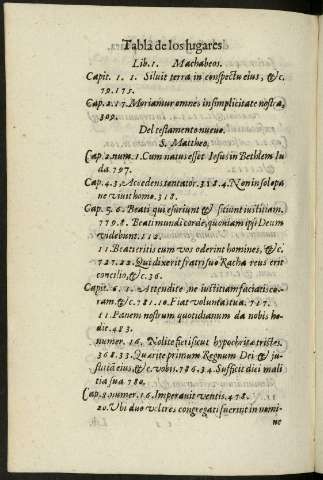 Tabla de los lugares
Lib. 1. Machabeos.
Capit. 1. 1. Siluit terra in conspectu eius, &c.
79.175.
Cap. 2.17. Moriamur omnes in simplicitate nostra,
309.
Del testamento nueuo.
S. Mattheo.
Cap. 2. num. 1. Cum natus esset Iesus in Bethlem Iu
da. 797.
Cap. 4.3. Accedens tentator. 318. 4. Non in solo pa
ne viuit homo. 318.
Cap. 5. 6. Beati qui esuriunt & sitiunt iustitiam.
779. 8. Beati mundi corde, quoniam ipsi Deum
videbunt. 112.
11. Beati eritis cum vos oderint homines, &c.
727. 22. Qui dixerit fratri suo Racha reus erit
concilio, &c. 36.
Capit. 6. 1. Attendite, ne iustitiam faciatis co-
ram. &c. 781. 10. Fiat voluntas tua. 717.
11. Panem nostrum quotidianum da nobis ho-
die. 483.
numer. 16. Nolite fieri sicut hypochritæ tristes.
368. 33. Quærite primum Regnum Dei & ju-
stitiā eius, & c. vobis. 786. 34. Sufficit diei mali
tia sua 780.
Cap. 8. numer. 16. Imperauit ventis. 478.
20. Vbi duo vel tres congregati fuerint in nomi-
ne